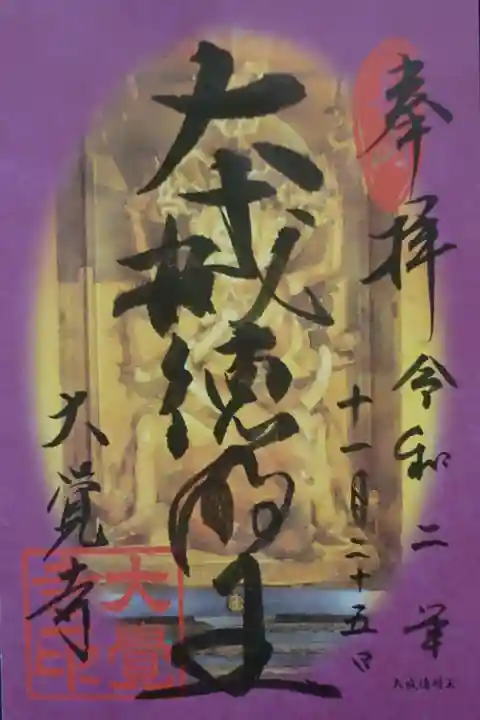 奉拝
令和二年
十一月二十五日
大威徳明王
大覺寺
大覺寺印
大威徳明王